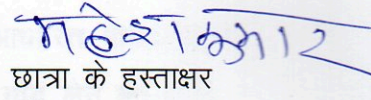 महेश कुमार
छात्रा के हस्ताक्षर